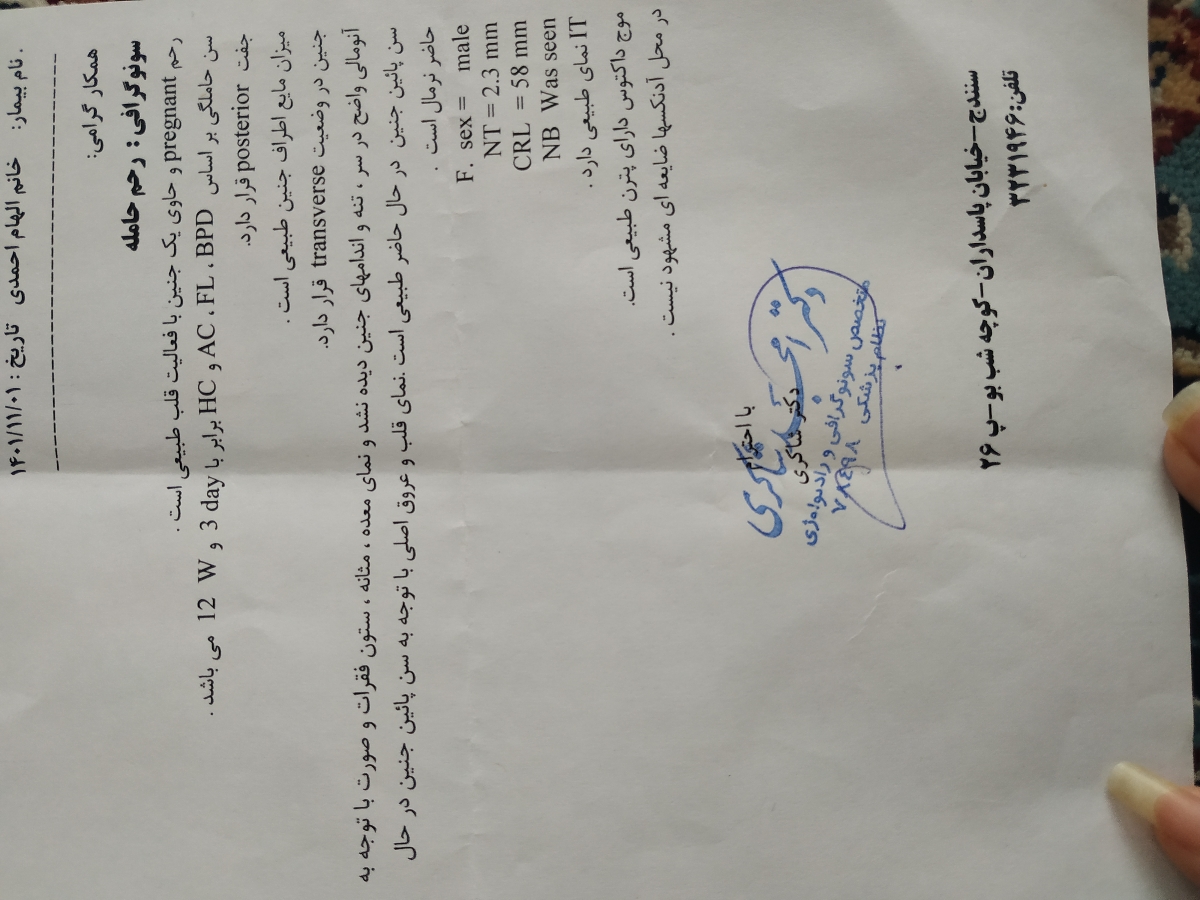 نام بیمار: خانم الهام احمدی تاریخ : ۱۴۰۱/۱۱/۰۱ .
همکار گرامی:
سونوگرافی : رحم حامله
رحم pregnant و حاوی یک جنین با فعالیت قلب طبیعی است .
سن حاملگی بر اساس AC ، FL ، BPD و HC برابر با 3 day و 12 W می باشد .
جفت posterior قرار دارد.
میزان مایع اطراف جنین طبیعی است .
جنین در وضعیت transverse قرار دارد.
آنومالی واضح در سر ، تنه و اندامهای جنین دیده نشد و نمای معده ، مثانه ، ستون فقرات و صورت با توجه به
سن پائین جنین در حال حاضر طبیعی است .نمای قلب و عروق اصلی با توجه به سن پائین جنین در حال
حاضر نرمال است .
F. sex = male
NT = 2.3 mm
CRL = 58 mm
NB Was seen
IT نمای طبیعی دارد .
موج داکتوس دارای پترن طبیعی است.
در محل آدنکسها ضایعه ای مشهود نیست .
با احترام
دکتر شاکری
دکتر شاکری
متخصص سونوگرافی و رادیولوژی
نظام پزشکی ۷۸۴۹۸
سنندج-خیابان پاسداران-کوچه شب بو-پ ۲۶
تلفن:۳۳۲۳۱۹۴۶